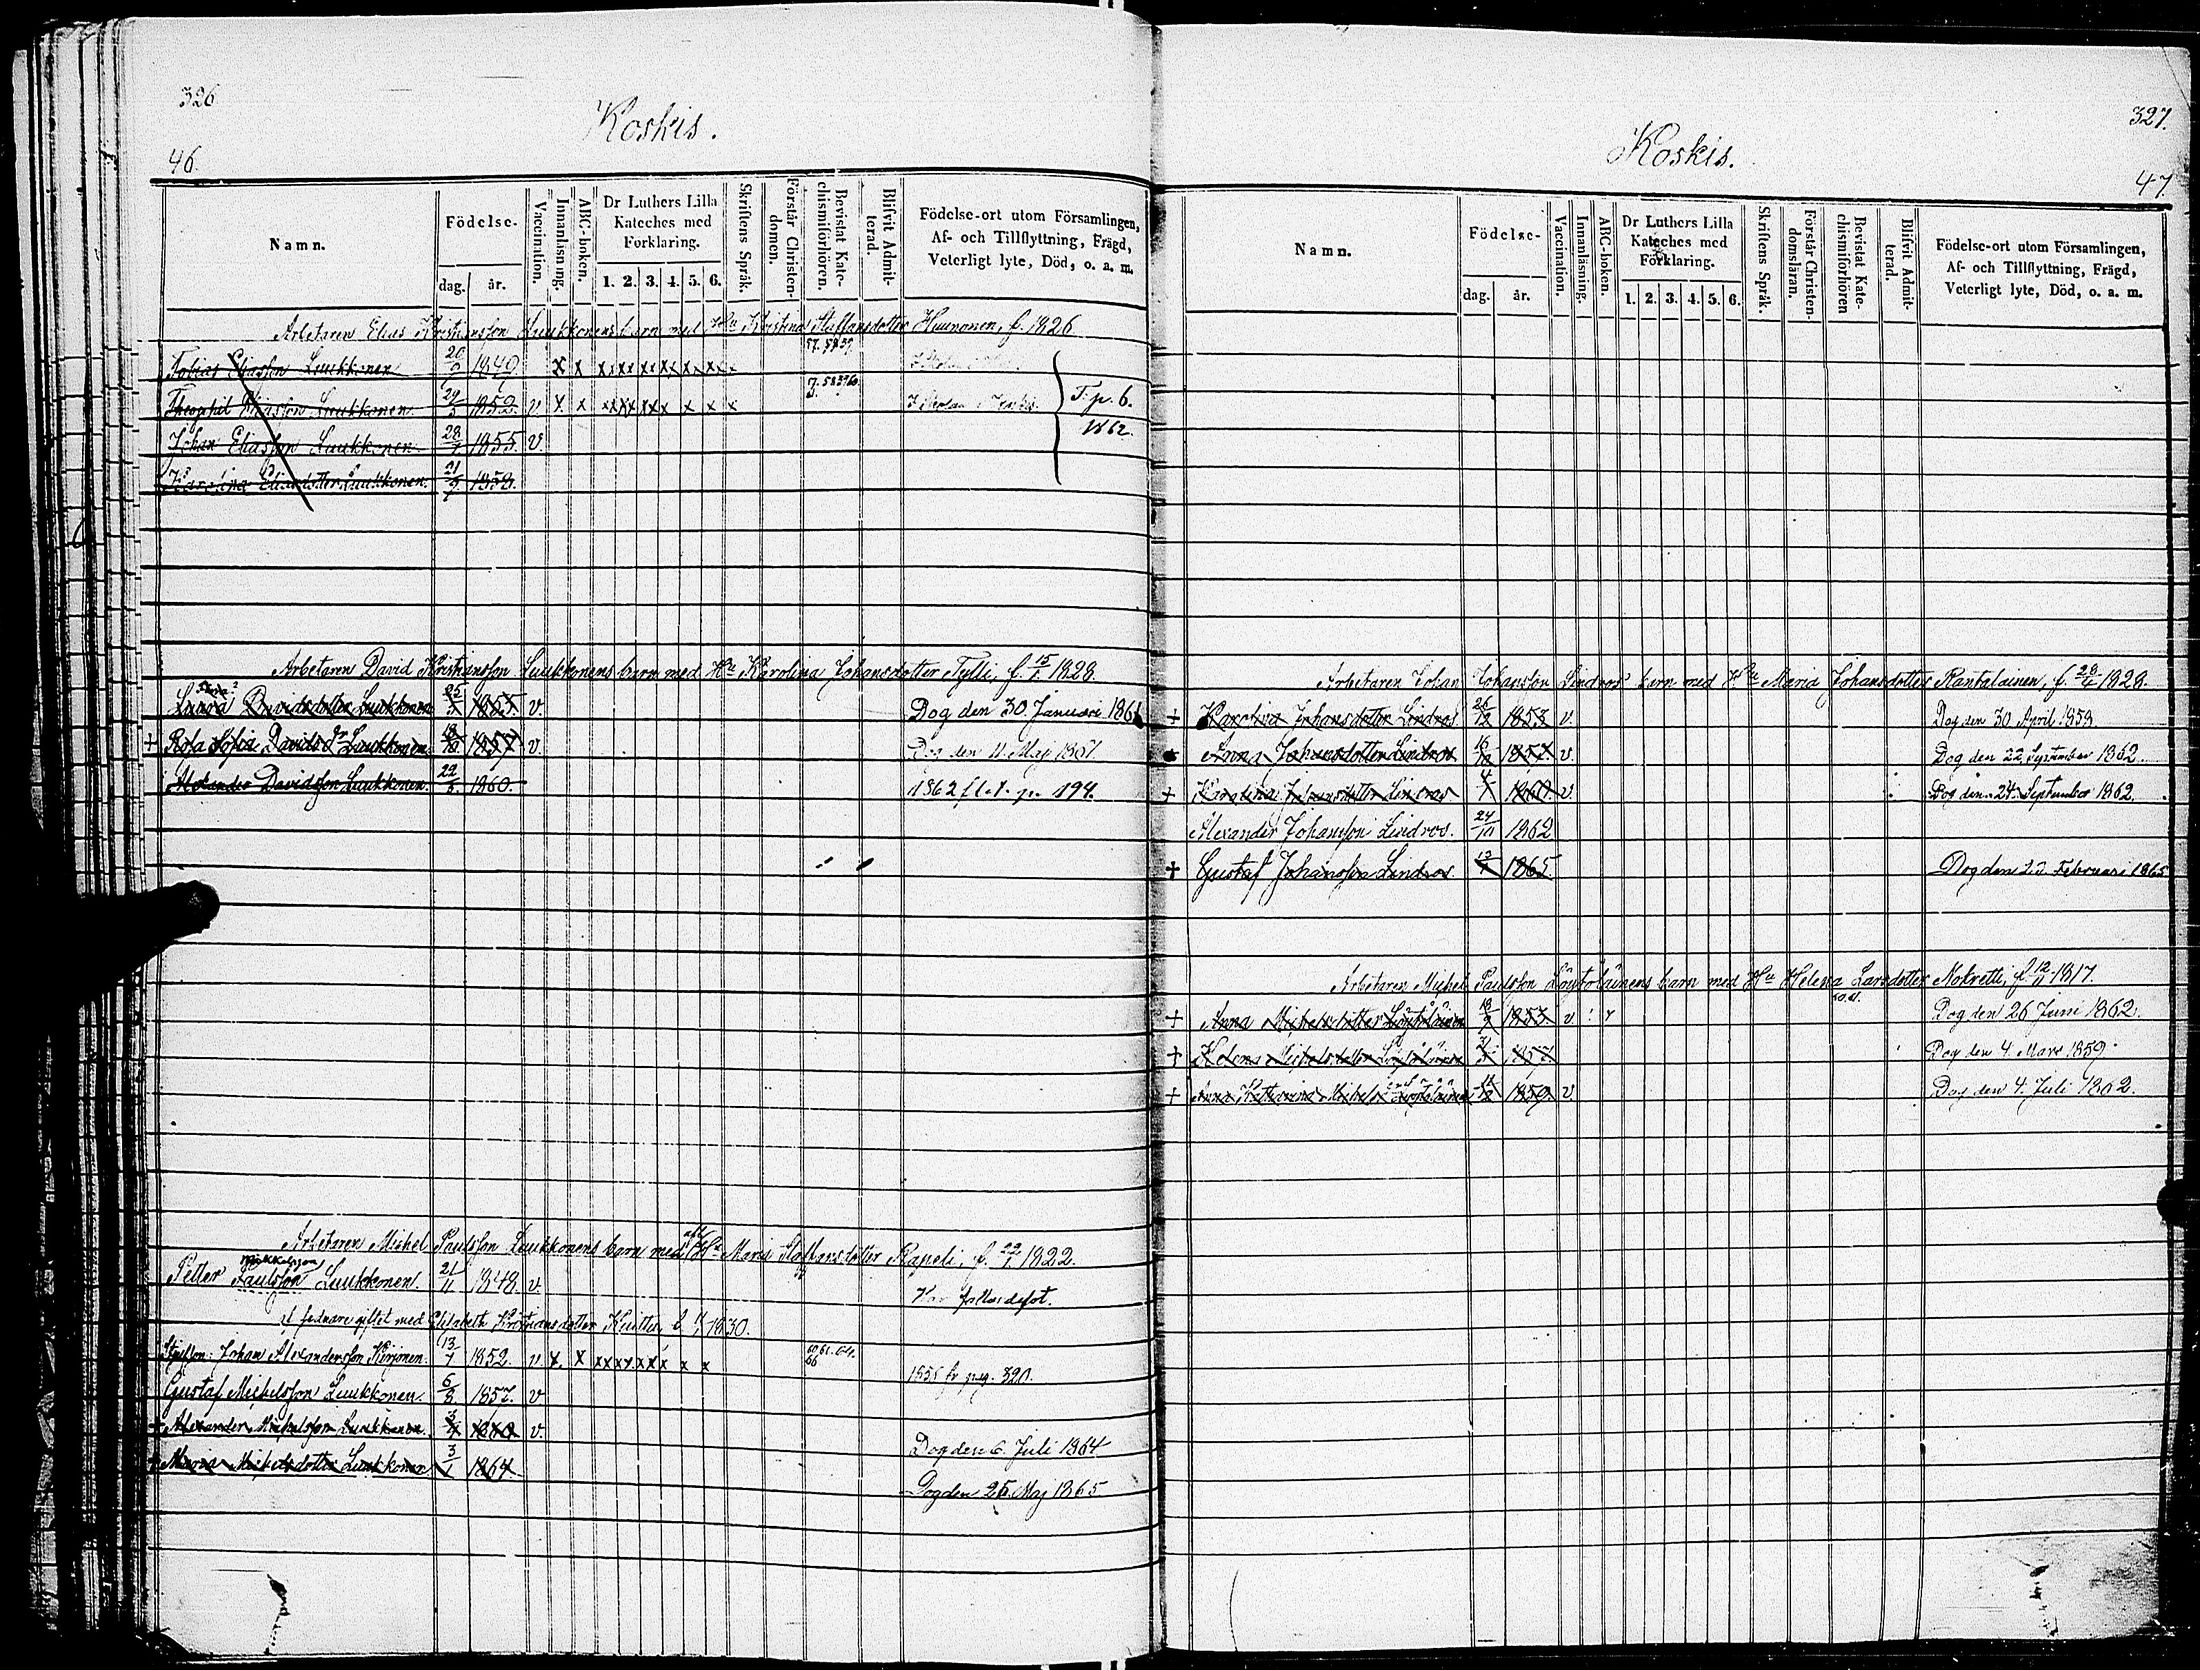 326
Koskis.
46.
Namn.
Födelse-
dag. år.
Vaccination.
Innanläsning.
ABC-boken.
Dr Luthers Lilla Kateches med Förklaring.
1. 2. 3. 4. 5. 6.
Skriftens Språk.
Förstår Christen-domen.
Bevistat Kate-chismiförhören.
Blifvit Admit-terad.
Födelse-ort utom Församlingen,
Af- och Tillflyttning, Frägd,
Veterligt lyte, Död, o. a. m.
Arbetaren Elias Kristiansson Luukkonens barn med Hu Kristina Staffansdotter Huunonen, f. 1826
Tobias Eliasson Luukkonen 1849 x x x x x x x x x x
Theophil Eliasson Luukkonen 1852. v x x x x x x x x x x T. p. 6.
Johan Eliasson Luukkonen 28 1855 v. 1862.
Karolina Eliasdotter Luukkonen. 21 1858.
Arbetaren David Kristiansson Luukkonens barn med Hu Karolina Johansdotter Tylli, f. 15/1 1828.
Davidsdotter Luukkonen 25 1855 v. Dog den 30. Januari
+ Rosa Sofia Davids dr Luukkonen 1857 v Dog den 11. Maj
Alexander Davidsson Luukkonen. 22 1860. 1862 p. 194.
Arbetaren Michel Paulsson Luukkonens barn med afl. Hu Maria Staffansdotter Rapeli, f. 22/1 1822.
Mikkelsson
Petter Paulsson Luukkonen. 21/11 1848. v. Har fallandesot.
giftet med Elisabeth Kristiansdotter 1830.
Styfson: Johan Alexandersson Kirjonen. 13/7 1852. v x. x x x x x x x x x 60 61. 64. 66 fr pag. 320.
Gustaf Michelsson Luukkonen. 6/8 1857. v
+ Alexander Michelsson Luukkonen. 1860 v. Dog den 6. Juli 1864
+ Maria Michelsdotter Luukkonen 3/1 1864 Dog den 25. Maj 1865
327.
Koskis.
47.
Namn.
Födelse-
dag. år.
Vaccination.
Innanläsning.
ABC-boken.
Dr Luthers Lilla Kateches med Förklaring.
1. 2. 3. 4. 5. 6.
Skriftens Språk.
Förstår Christen-domsläran.
Bevistat Kate-chismiförhören
Blifvit Admit-terad.
Födelse-ort utom Församlingen,
Af- och Tillflyttning, Frägd,
Veterligt lyte, Död, o. a. m.
Arbetaren Johan Johansson Lindros barn med Hu Maria Johansdotter Rantalainen, f. 28 1828.
+ Karolina Johansdotter Lindros 26/12 1853 v. Dog den 30 April 1858.
Anna Johansdotter Lindros 16 1857. v. Dog den 22 September 1862.
+ Karolina Johansdotter Lindros 4 1860. v. Dog den 24. September 1862.
Alexander Johansson Lindros. 24 1862
+ Gustaf Johansson Lindros. 1865 Dog den Februari 1865
Arbetaren Michel Paulsson Löytöläinens barn med Hu Helena Larsdotter Mokretti, f. 12/11 1817.
+ Anna Michelsdotter Löytöläinen 18/9 1853. v. Dog den 26 Juni 1862.
+ Helena Michelsdotter Löytöläinen 1857 Dog den 4. Mars 1859.
+ Anna Katharina Michels Löytöläinen 1859. v Dog den 4. Juli 1862.